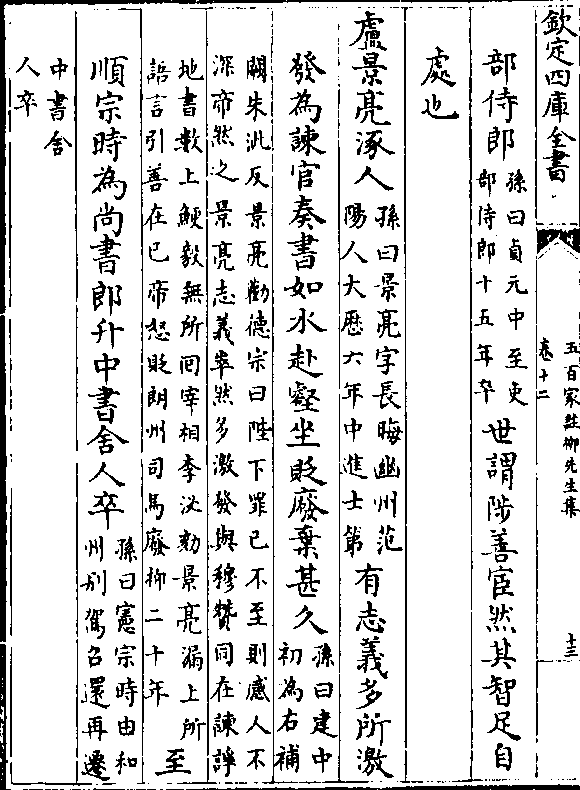 欽定四庫全書
五百家註柳先生集
卷十二
十三
部侍郎孫曰貞元中至吏
部侍郎十五年卒世謂陟善宦然其智足自
處也
盧景亮涿人孫曰景亮字長晦幽州范
陽人大歷六年中進士第有志義多所激
發為諫官奏書如水赴壑坐貶廢棄甚久孫曰建中
初為右補
闕朱泚反景亮勸德宗曰陛下罪已不至則感人不
深帝然之景亮志義崒然多激發與穆贊同在諫諍
地書數上鯁毅無所回宰相李泌劾景亮漏上所
語言引善在已帝怒貶朗州司馬廢抑二十年至
順宗時為尚書郎升中書舍人卒孫曰憲宗時由和
州別駕召還再遷
中書舍
人卒